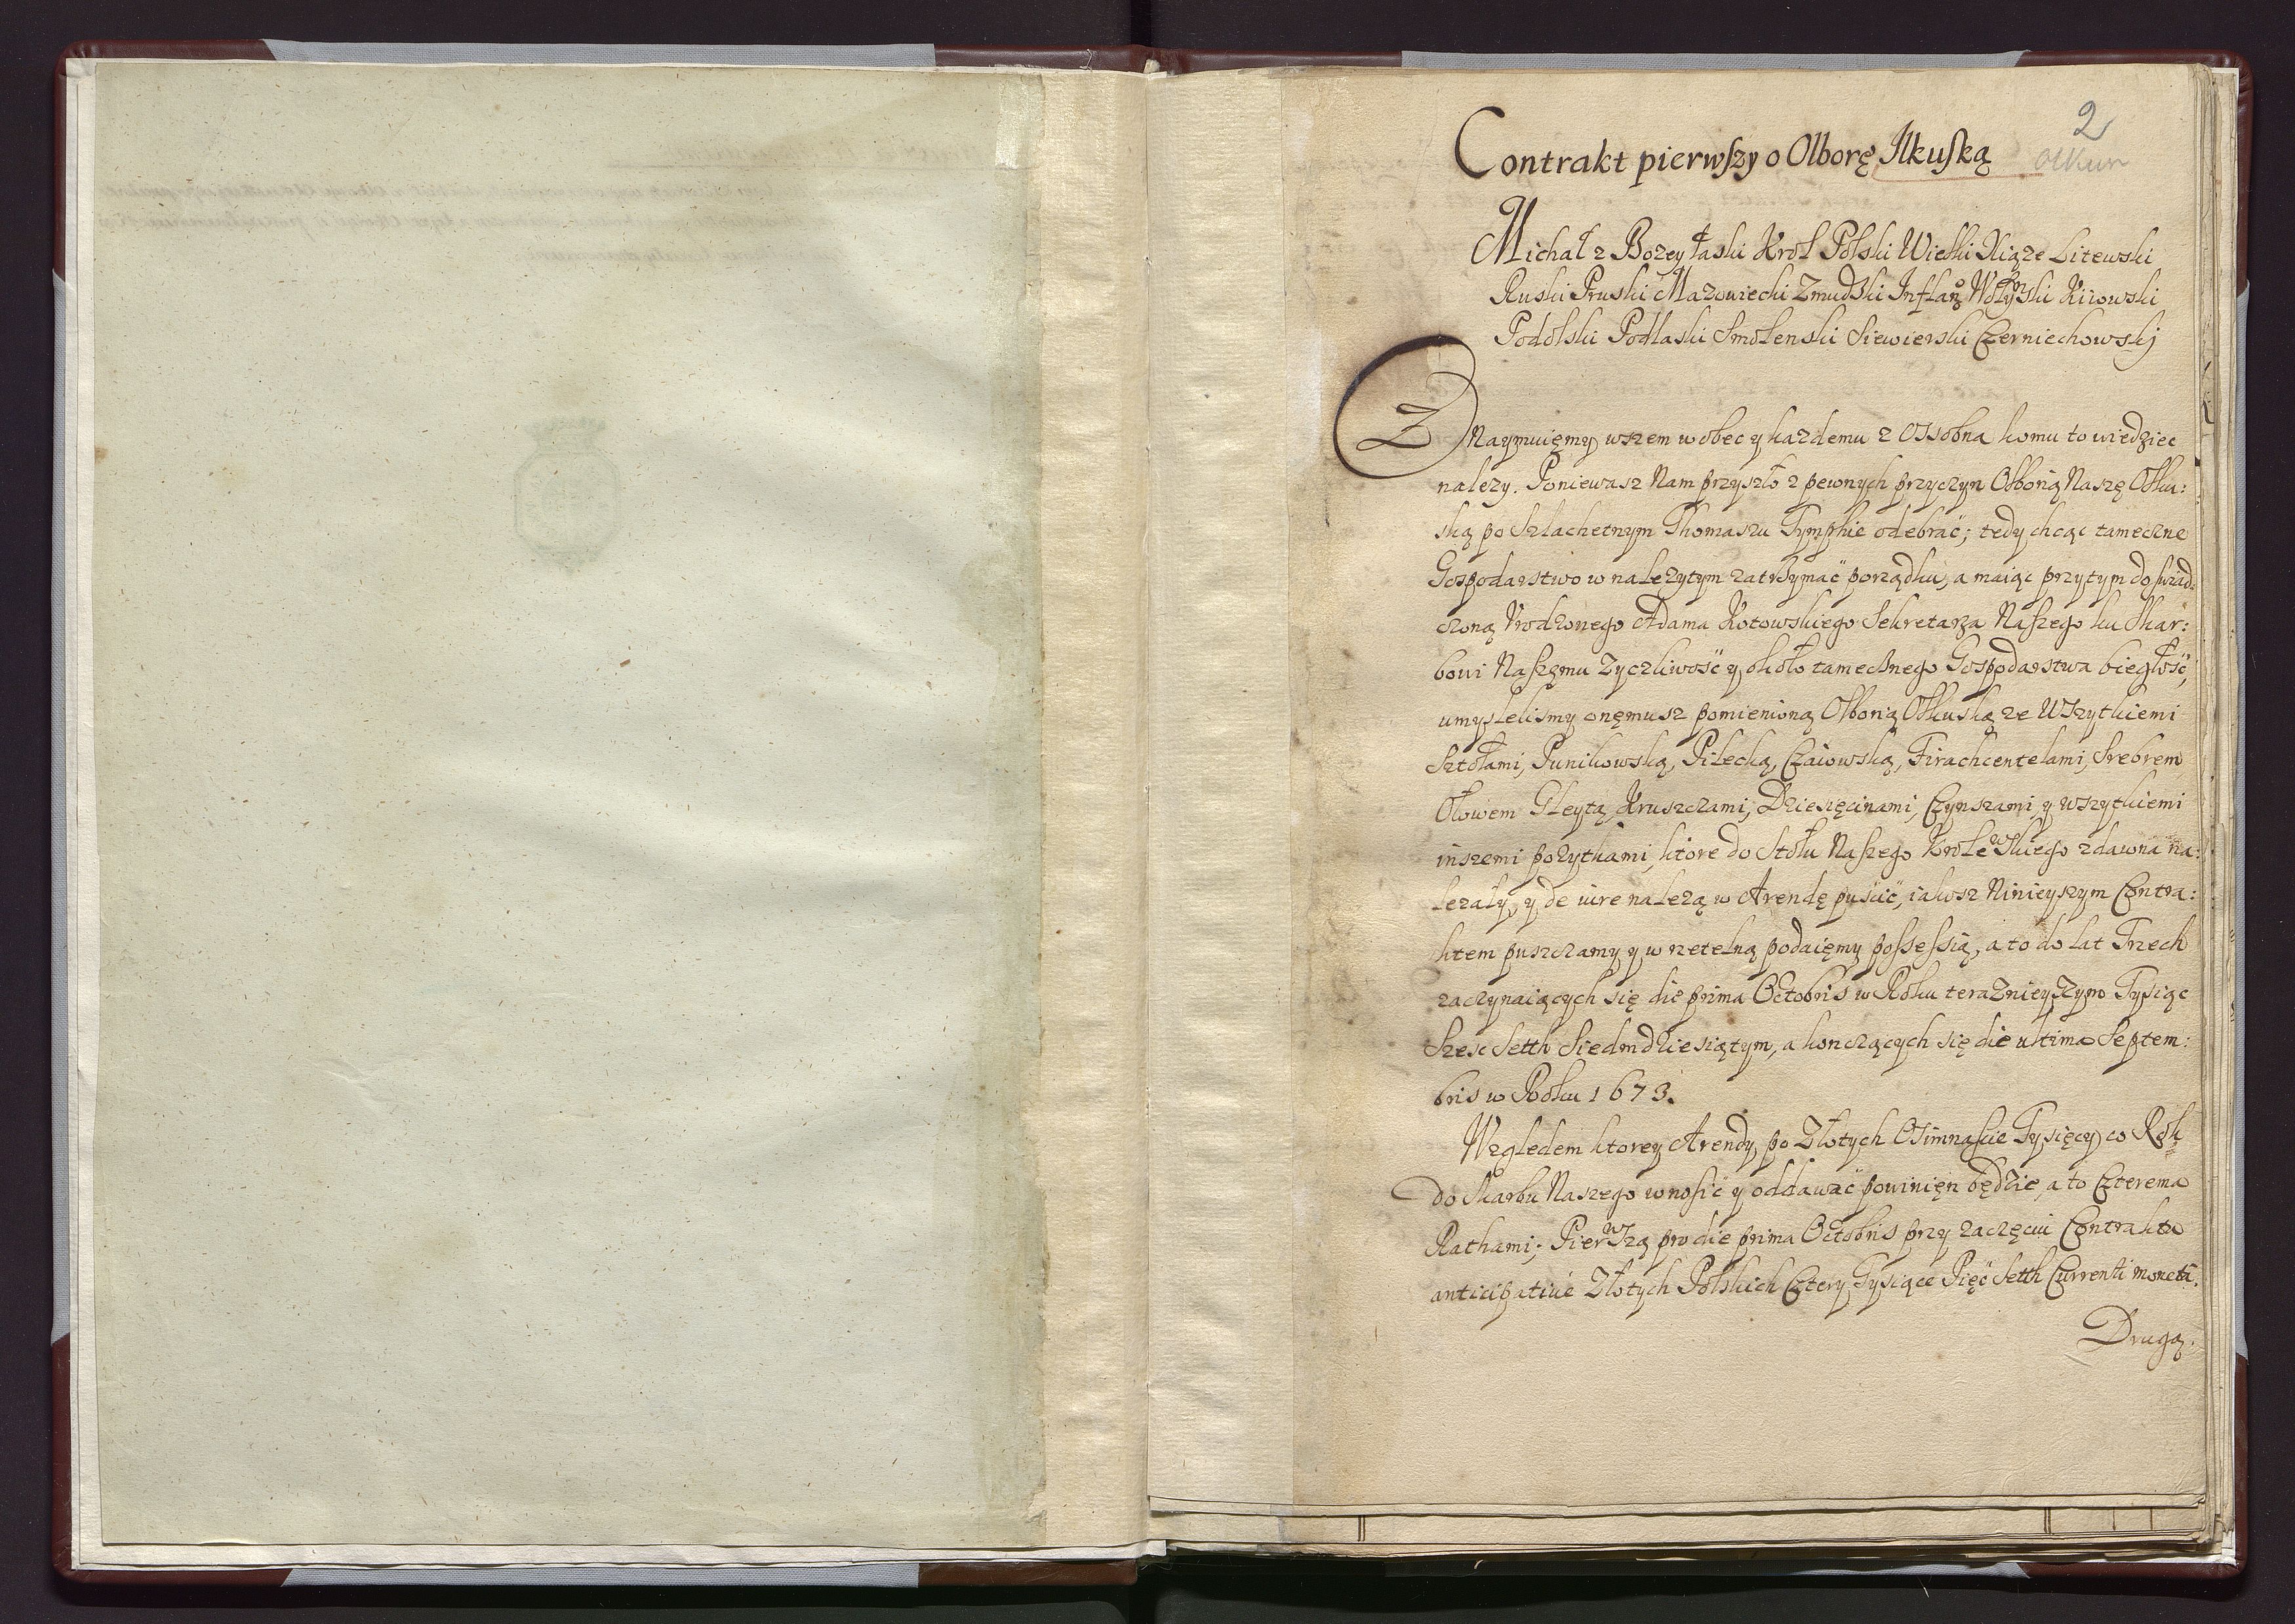 2
Contrakt pierwszy o Olborę Ilkuską
Olkus
Michał z Bozey łaski Krol Polski Wielki Xiąze Litewski
Ruski Pruski Mazowiecki Zmudzki Inflanc Wołynski Kiiowski
Podolski Podlaski Smolenski Siewierski Czerniechowskj
Znaymuięmy wszem wobec y kazdemu z ossobna komu to wiedziec
nalezy. Poniewasz Nam przyszło z pewnych przyczyn Olborią Naszę Olku:
ską po Szlachetnym Thomaszu Tymphie odebrać; tedy chcąc tameczne
Gospodarstwo w nalezytym zatrzymać porządku, a maiąc przytym doswiad:
czoną Vrodzonego Adama Kotowskiego Sekretarza Naszego ku Skar:
bowi Naszęmu zyczliwość y około tamecznego Gospodarstwa biegłość,
umysleliśmy onęmusz pomienioną Olborią Olkuską ze wszytkiemi
Sztołami, Punikowską, Pilecką, Czaiowską, Firachcentelami, Srebrem
Ołowem Gleytą Kruszczami, Dziesięcinami, Czynszami, y wszytkiemi
inszemi pozytkami, ktore do Stołu Naszego Krolewskiego zdawna na:
lezały, y de iure nalezą w Arendę puścić, iakosz Ninieyszym Contra:
ktem puszczamy y w rzetelną podaięmy possessią, a to do lat Trzech
zaczynaiących się die prima Octobris w Roku teraznieyszym Tysiąc
Szesc Setth Siedmdziesiątym, a konczących się die ultima Septem:
bris w Roku 1673.
Względem ktorey Arendy, po Złotych Osimnascie Tysięcy co Rok
do Skarbu Naszego wnosić y oddawać powinięn będzie, a to Czterema
Rathami; Pierwszą pro die prima Octobris przy zaczęciu Contraktu
anticipative Złotych Polskich Cztery Tysiące Pięć Setth Currenti moneta.
Drugą.